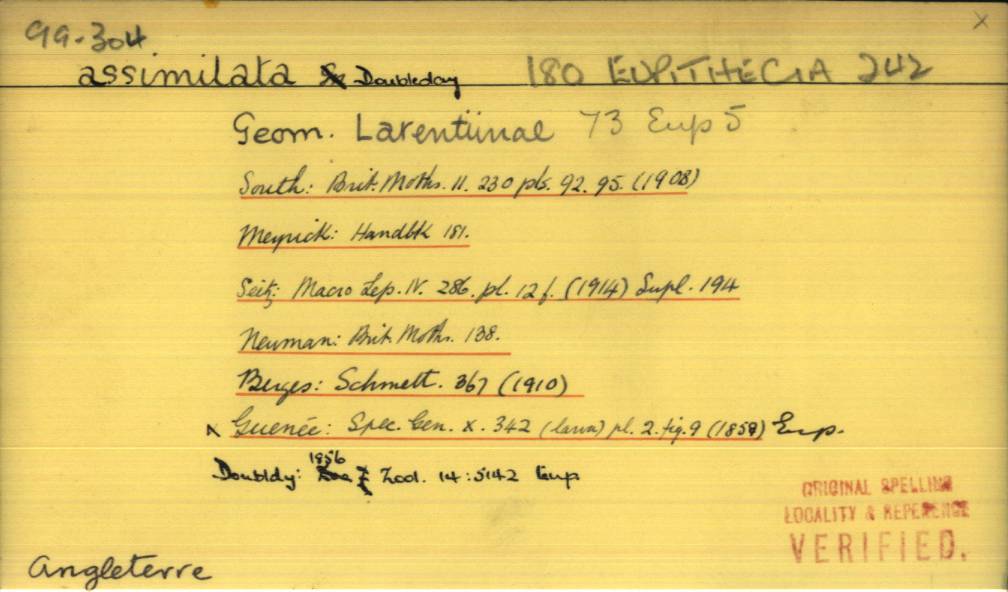 99-304
x
assimilata Doubleday 180 EUPITHECIA 242
Geom. Larentiinae 73 Eup 5
South: Brit. Moths. II. 230 pls. 92. 95. (1908)
Meyrick: Handbk 181.
Seitz: Macro Lep. IV. 286. pl. 12 f. (1914) Supl. 194
Newman: Brit. Moths. 138.
Berges: Schmett. 367 (1910)
x Guenée: Spec. Gen. X. 342 (larva) pl. 2. fig. 9 (1858) Eup.
Doubldy: 1856 Zool. 14:5142 Eup
ORIGINAL SPELLING
LOCALITY & REFERENCE
VERIFIED.
Angleterre